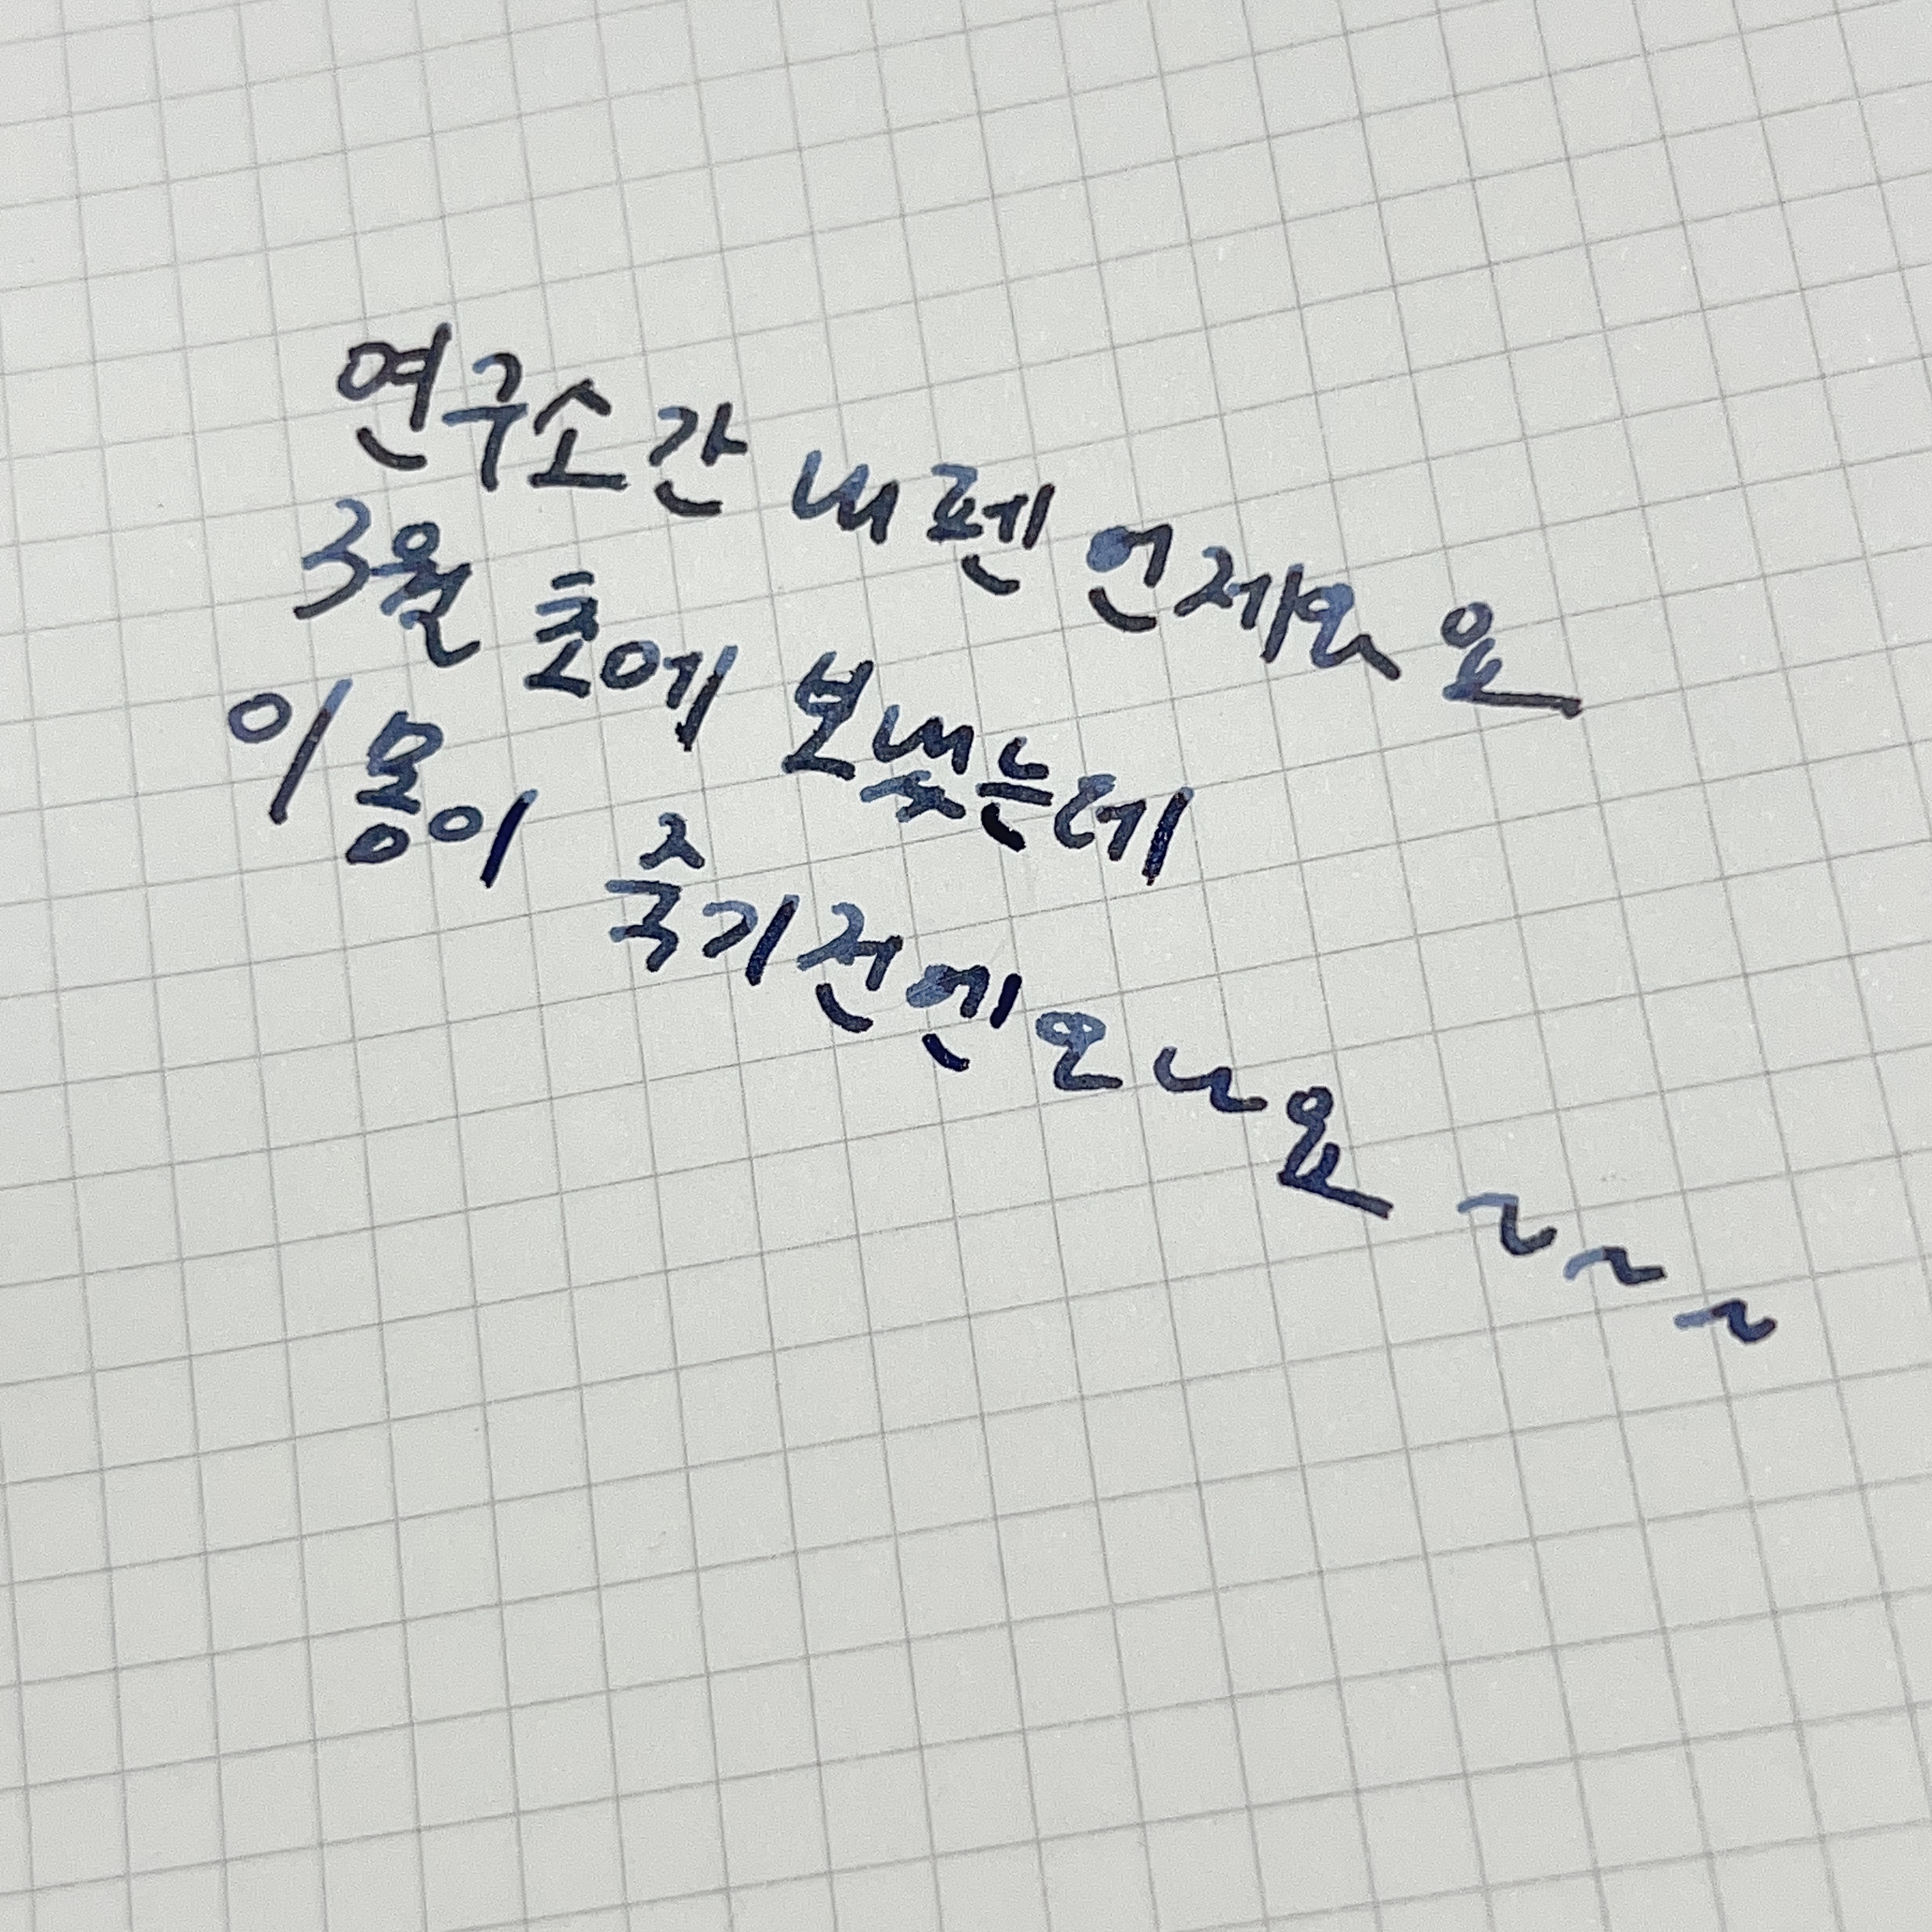 연구소간 내 펜 언제와 요
3월 초에 보냈는데
이 몽이 죽기전엔 오나요 ~~~